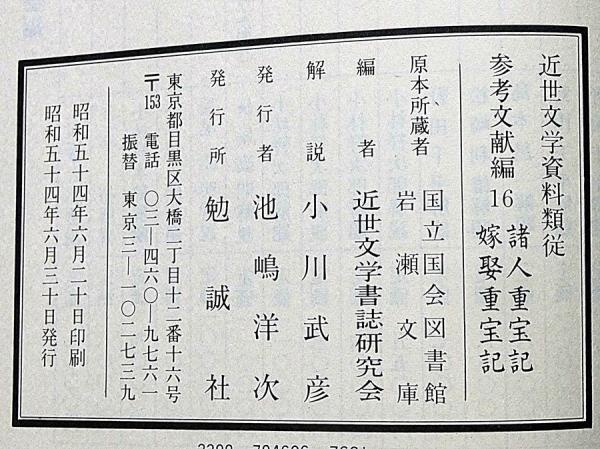 近世文学資料類従
参考文献編16 諸人重宝記
嫁娶重宝記
原本所蔵者 国立国会図書館
岩瀬文庫
編者 近世文学書誌研究会
解説 小川武彦
発行者 池嶋洋次
発行所 勉誠社
東京都目黒区大橋二丁目十二番十六号
〒153 電話 〇三―四六〇―九七六一
振替 東京三―一〇二七三九
昭和五十四年六月二十日印刷
昭和五十四年六月三十日発行